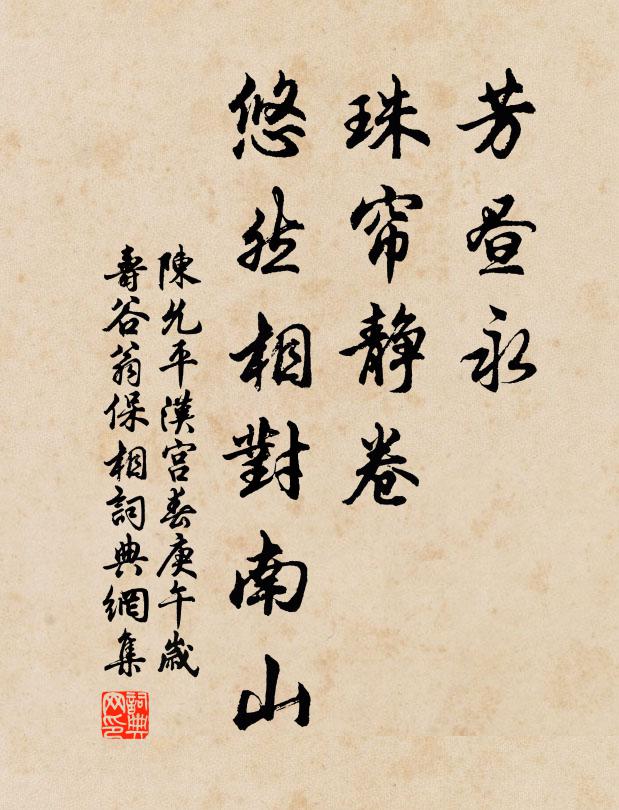 芳昼永
珠帘静卷
悠然相對南山
陳允平漢宮春庚午歲
壽谷翁保相詞典網集
詞典网印